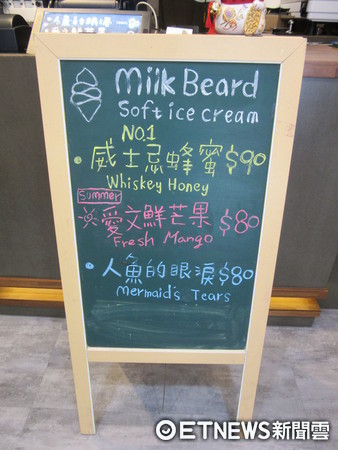 Miik Beard
Soft ice cream
NO.1
威士忌蜂蜜 $90
Whiskey Honey
Summer
愛文鮮芒果 $80
Fresh Mango
人魚的眼淚 $80
Mermaid's Tears
ETNEWS新聞雲